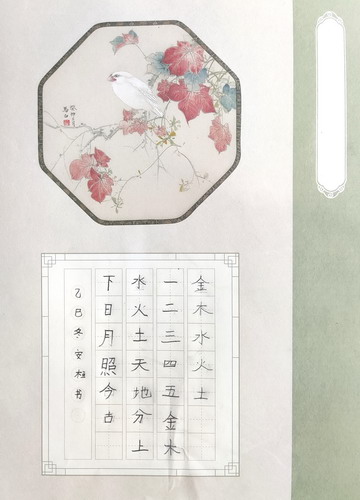 金木水火土
一二三四五金木
水火土天地分上
下日月照今古
乙巳冬安柱书